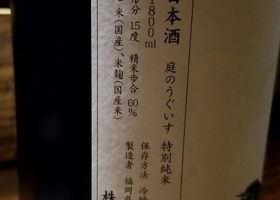 本酒
庭のうぐいす 特別純米
1800ml
分 15度 精米歩合 60%
米(国産)、米麹(国産米)
保存方法 冷
製造者 福岡
株